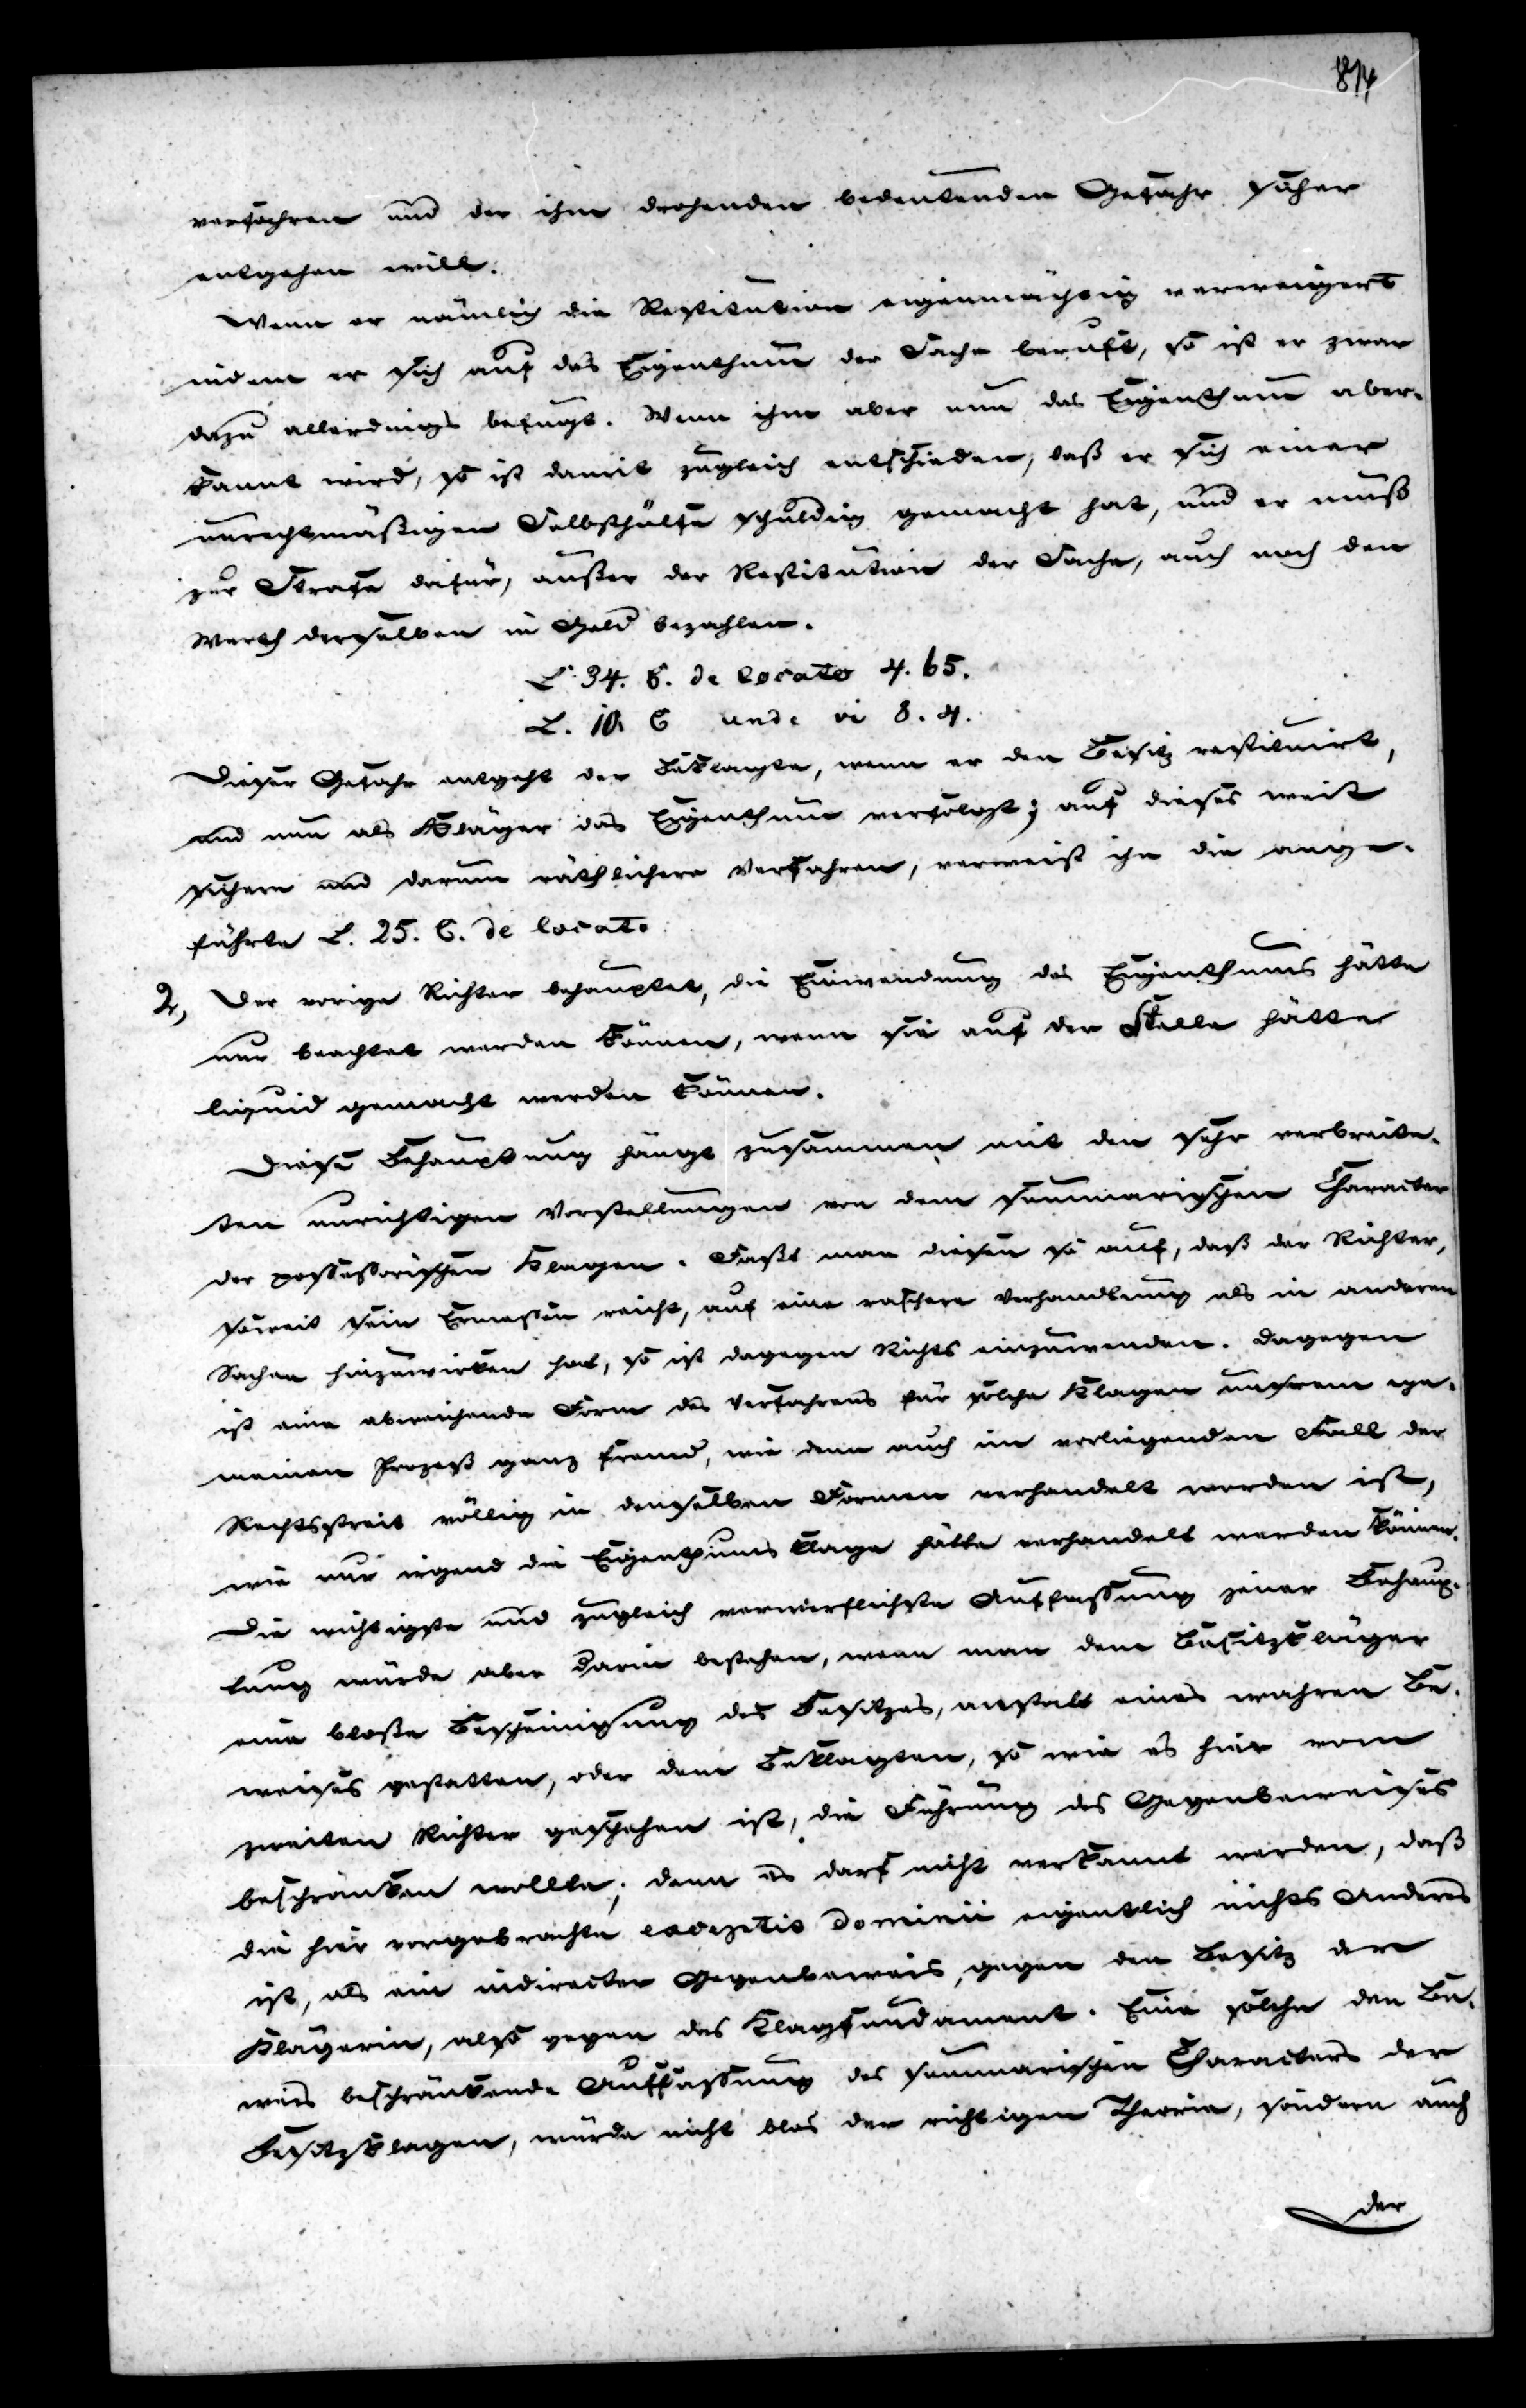 814
verfahren und der ihm drohenden bedeutenden Gefahr sicher
entgehen will.
Wenn er nämlich die Restitution eigenmächtig verweigert
indem er sich auf das Eigenthum der Sache beruft, so ist er zwar
dazu allerdings befugt. Wenn ihm aber nun das Eigenthum aber-
kannt wird, so ist damit zugleich entschieden, daß er sich einer
unrechtmäßigen Selbsthülfe schuldig gemacht hat, und er muß
zur Strafe dafür, außer der Restitution der Sache, auch noch den
Werth derselben in Geld bezahlen.
L. 34. C. de locato 4. 65.
L. 10. C unde vi 8. 4.
Dieser Gefahr entgeht der Beklagte, wenn er den Besitz restituirt,
und nun als Kläger das Eigenthum verfolgt; auf dieses weit
sichere und darum räthlichere Verfahren, verweist ihn die ange-
führte L. 25. C. de locato.
2, Der vorige Richter behauptet, die Einwendung des Eigenthums hätte
nur beachtet werden können, wenn sie auf der Stelle hätte
liquid gemacht werden können.
Diese Behauptung hängt zusammen mit den sehr verbreite-
ten unrichtigen Vorstellungen von dem summarischen Character
der possessorischen Klagen. Faßt man diesen so auf, daß der Richter,
soweit sein Ermessen reicht, auf eine raschere Verhandlung als in anderen
Sachen hinzuwirken hat, so ist dagegen Nichts einzuwenden. Dagegen
ist eine abweichende Form des Verfahrens für solche Klagen unserem ge-
meinen Prozeß ganz fremd, wie denn auch im vorliegenden Fall der
Rechtsstreit völlig in denselben Formen verhandelt worden ist,
wie nur irgend die Eigenthums klage hätte verhandelt werden können.
Die wichtigste und zugleich verwerflichste Auffassung jener Behaup-
tung würde aber darin bestehen, wenn man dem Besitzkläger
eine bloße Bescheinigung des Besitzes, anstatt eines wahren Be-
weises gestatten, oder dem Beklagten, so wie es hier vom
zweiten Richter geschehen ist, die Führung des Gegenbeweises
beschränken wollte; denn es darf nicht verkannt werden, daß
die hier vorgebrachte exceptio dominii eigentlich nichts Anderes
ist, als ein indirecter Gegenbeweis, gegen den Besitz der
Klägerin, also gegen das Klagfundament. Eine solche den Be-
weis beschränkende Auffassung des summarischen Characters der
Besitzklagen, würde nicht blos der richtigen Theorie, sondern auch
der